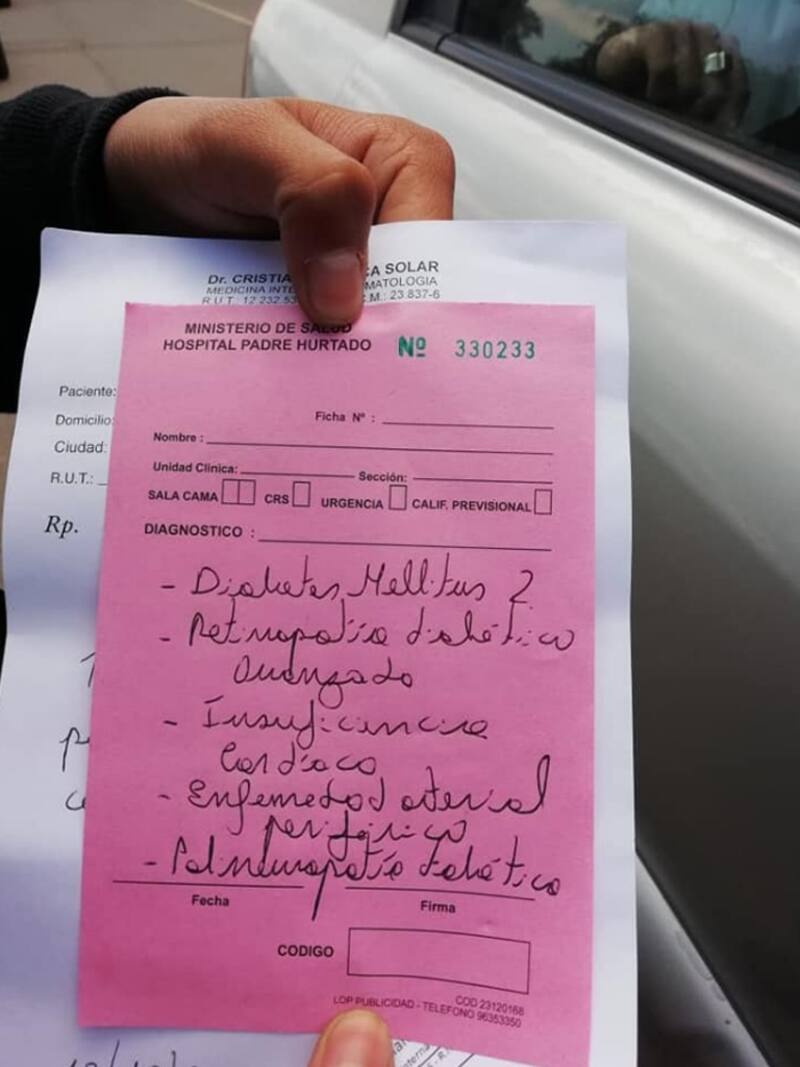 Dr. CRISTIA CA SOLAR
MEDICINA INTE MATOLOGIA
R.U.T: 12.232.53 C.M.: 23.837-6
MINISTERIO DE SALUD
HOSPITAL PADRE HURTADO Nº 330233
Paciente:
Domicilio:
Ciudad:
R.U.T.:
Rp.
Ficha Nº :
Nombre :
Unidad Clinica: Sección:
SALA CAMA CRS URGENCIA CALIF. PREVISIONAL
DIAGNOSTICO :
- Diabetes Mellitus 2
- Retinopatía diabética
avanzada
- Insuficiencia
Cardíaca
- Enfemedad arterial
periférica
- Polineuropatía diabética
Fecha Firma
CODIGO
COD 23120168
LOP PUBLICIDAD - TELEFONO 96353350